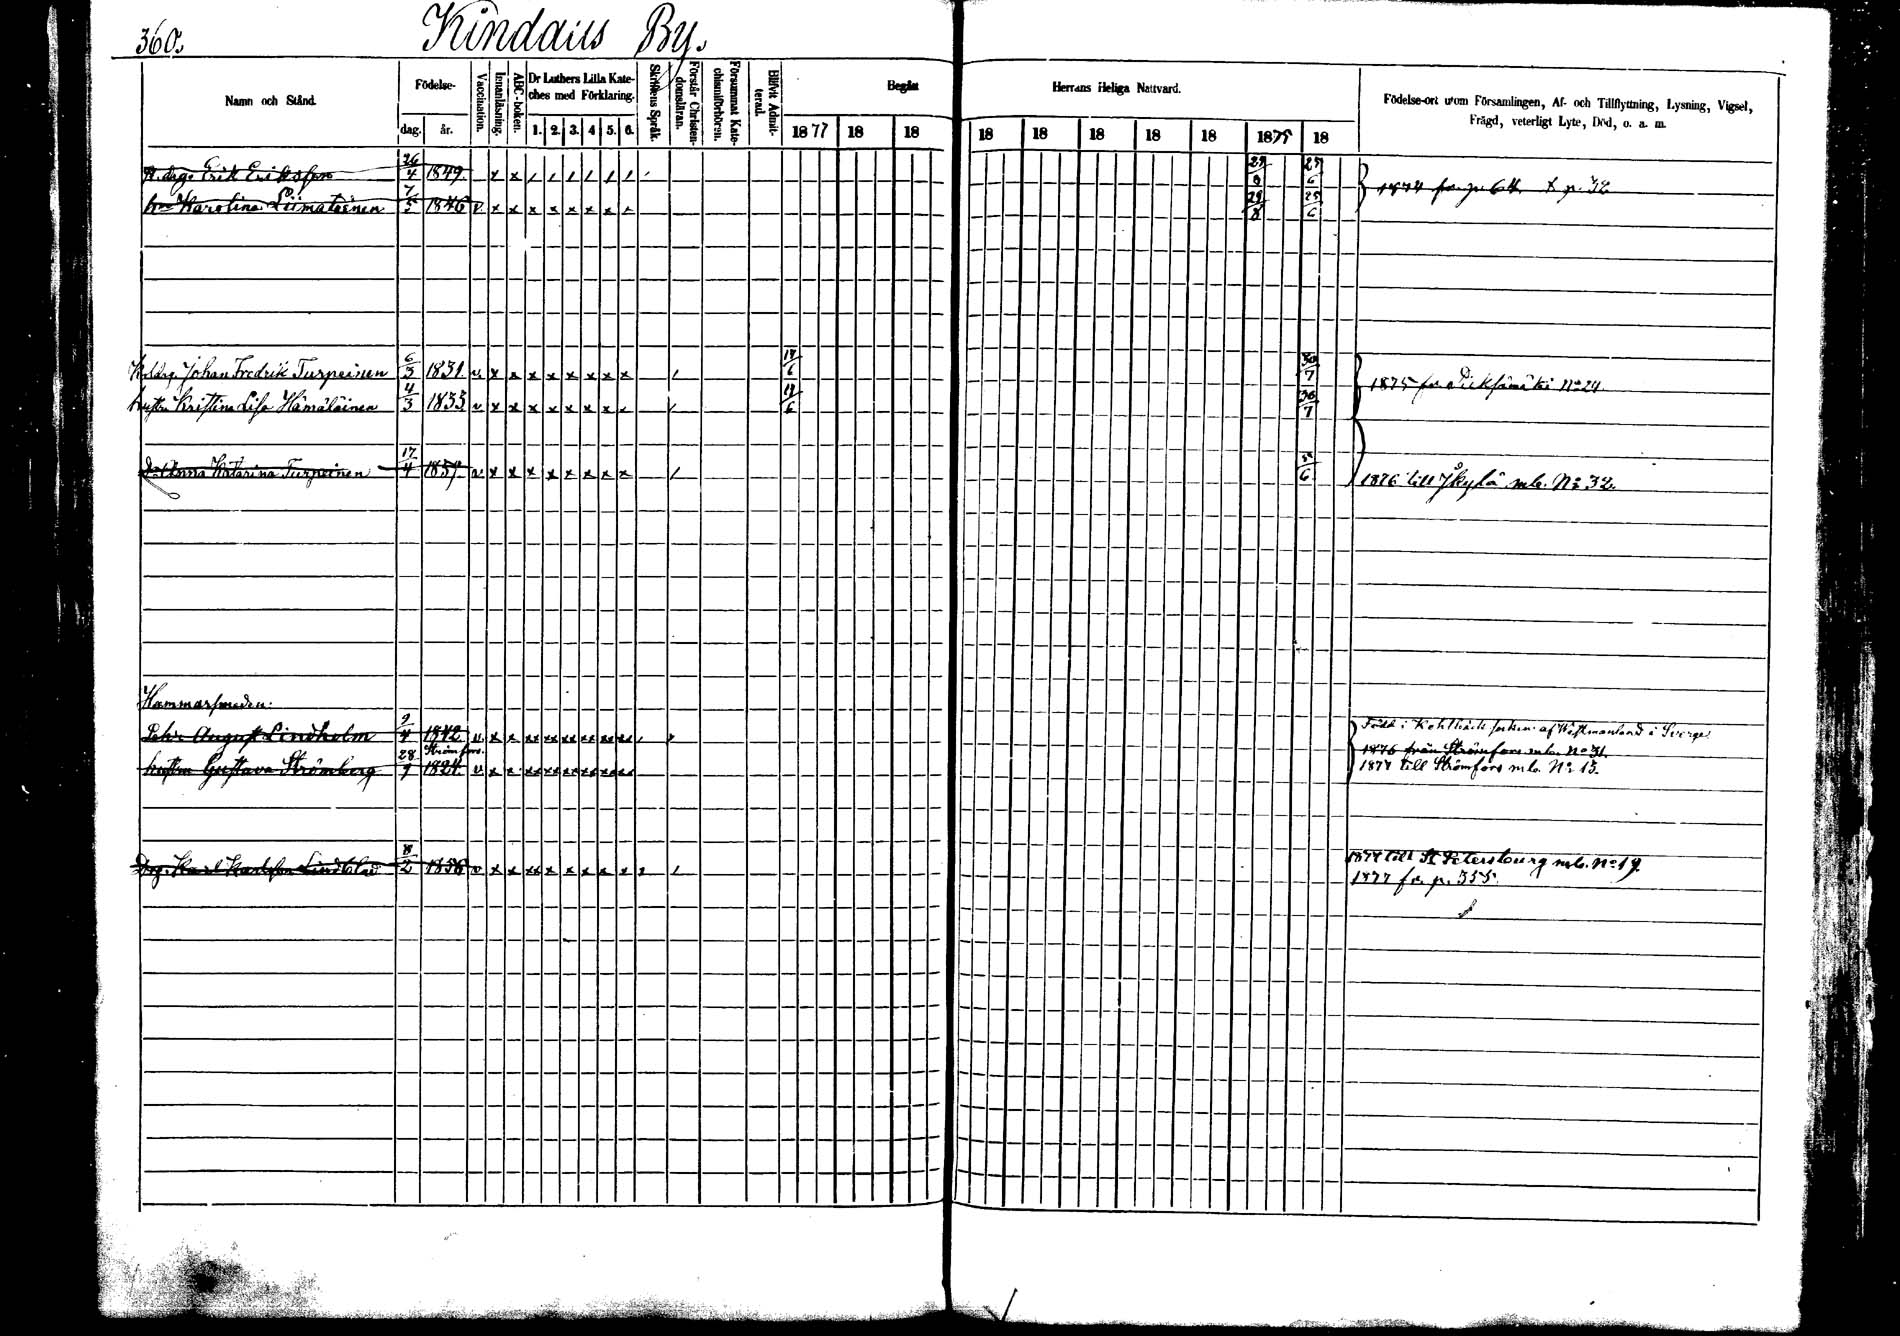 360.
Kindais By.
Namn och Stånd.
Födelse-
dag. år.
Vaccination.
Innanläsning.
ABC-boken.
Dr Luthers Lilla Kate-
ches med Förklaring.
1. 2. 3. 4 5. 6.
Skriftens Språk.
Förstår Christen-
domsläran.
Försummat Kate-
chismiförhören.
Blifvit Admit-
terad.
Begått Herrans Heliga Nattvard.
1877 18 18 18 18 18 18 18 1875 18
Födelse-ort utom Församlingen, Af- och Tillflyttning, Lysning, Vigsel,
Frägd, veterligt Lyte, Död, o. a. m.
Erik Eriksson 26/4 1849. x x 29/8 25/6
Karolina Liimatainen 7/5 1846 v x x x x x x x 29/8 25/6 1874 fr. p. 64 p. 32
Johan Fredrik Turpeinen 6/3 1831. v x x x x x x x x 17/6 30/7
hustru Kristina Lisa Hämäläinen 4/3 1833 v x x x x x x x 17/6 30/7 1875 fr Pieksämäki No 24
Anna Katarina Turpeinen 17/4 1857. v x x x x x x x x 1876 till Jkylä mb. No 32.
Hammarsmeden:
August Lindholm 9/4 1842 v. x x xx xx xx xx xx xx
Född i Kohlbäck socken af Westmanland i Sverge
Strömfors.
1876 från Strömfors mb. No 31.
hustru Gustava Strömberg 28/9 1824. v x x xx xx xx xx xx xx
1877 till Strömfors mb. No 15.
Drg. Karl Karlsson Lindblad 8/2 1858 v x x xx x x x x x
1877 till St Petersburg mb. No 19.
1877 fr. p. 355.